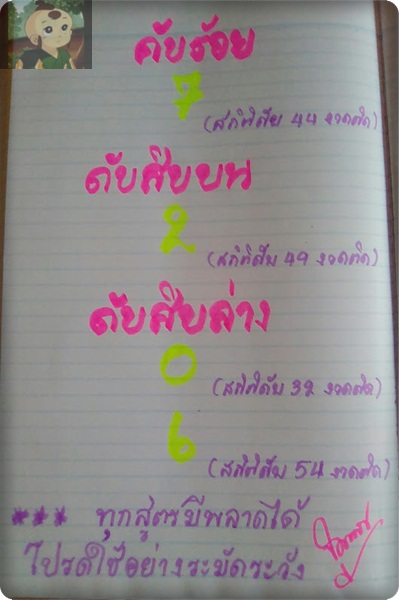 ดับร้อย
7
(สถิติดับ 44 งวดติด)
ดับสิบบน
2
(สถิติดับ 49 งวดติด)
ดับสิบล่าง
0
(สถิติดับ 32 งวดติด)
6
(สถิติดับ 54 งวดติด)
*** ทุกสูตรมีพลาดได้
โปรดใช้อย่างระมัดระวัง